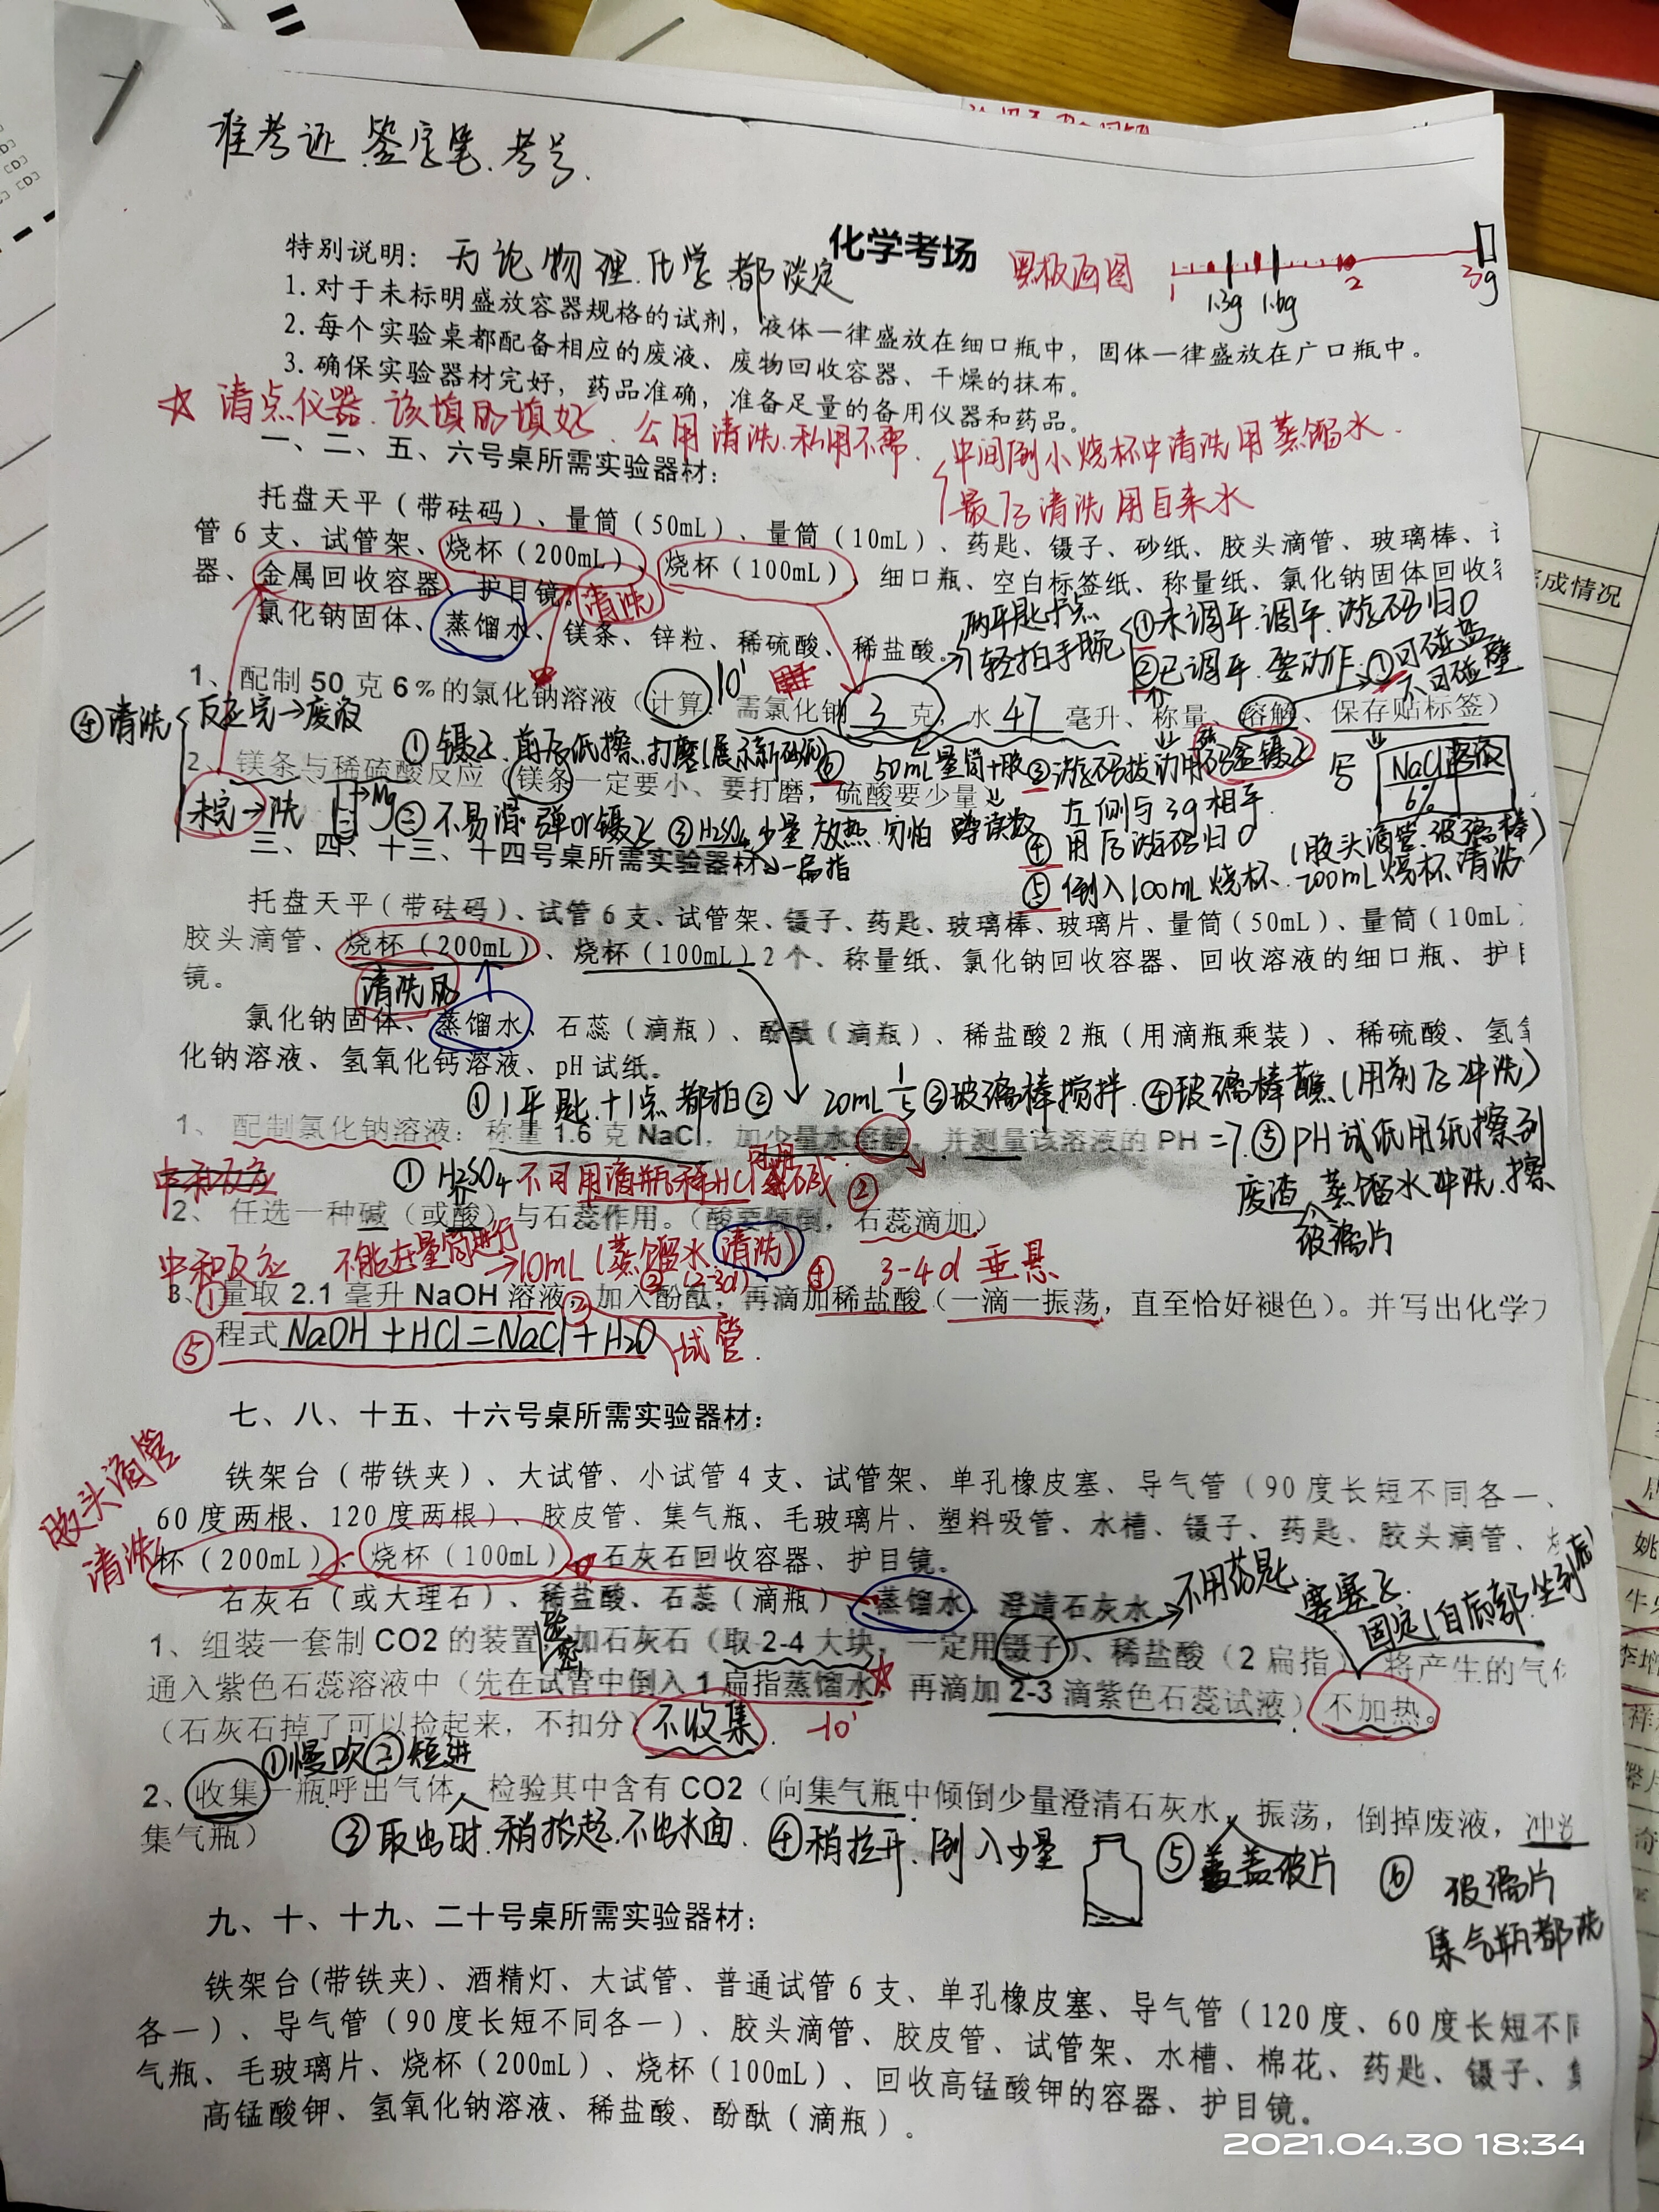 准考证.签字笔.考号.
化学考场
特别说明：无论物理.化学都淡定
黑板画图
1 1.3g 1.6g 2 3g
1.对于未标明盛放容器规格的试剂，液体一律盛放在细口瓶中，固体一律盛放在广口瓶中。
2.每个实验桌都配备相应的废液、废物回收容器、干燥的抹布。
3.确保实验器材完好，药品准确，准备足量的备用仪器和药品。
☆清点仪器.该填的填好.公用清洗.私用不需.
中间倒小烧杯中清洗用蒸馏水.
最后清洗用自来水
一、二、五、六号桌所需实验器材：
托盘天平（带砝码）、量筒（50mL）、量筒（10mL）、药匙、镊子、砂纸、胶头滴管、玻璃棒、
管6支、试管架、烧杯（200mL）、烧杯（100mL）、细口瓶、空白标签纸、称量纸、氯化钠固体回收
器、金属回收容器、护目镜。
清洗
氯化钠固体、蒸馏水、镁条、锌粒、稀硫酸、稀盐酸。
两平匙+点
轻拍手腕
①未调平.调平.游码归0
②已调平.要动作.
①可碰盐
不可碰壁
1、配制50克6%的氯化钠溶液（计算：需氯化钠3克，水47毫升、称量、溶解、保存贴标签）
10'
④清洗
反应完→废液
未完→洗
①镊子.前后纸擦.打磨(展示新砂纸)
50mL量筒+胶
③游码拨动用砝盒镊子
左侧与3g相平.
写
NaCl溶液
6%
2、镁条与稀硫酸反应（镁条一定要小、要打磨，硫酸要少量）
Mg
②不易滑.弹or镊子 ③H₂SO₄少量 放热 勿怕 蹲读数
→一扁指
④用后游码归0
⑤倒入100mL烧杯.200mL烧杯清洗
(胶头滴管.玻璃棒)
三、四、十三、十四号桌所需实验器材：
托盘天平（带砝码）、试管6支、试管架、镊子、药匙、玻璃棒、玻璃片、量筒（50mL）、量筒（10mL
胶头滴管、烧杯（200mL）、烧杯（100mL）2个、称量纸、氯化钠回收容器、回收溶液的细口瓶、护目
镜。
清洗用
氯化钠固体、蒸馏水、石蕊（滴瓶）、酚酞（滴瓶）、稀盐酸2瓶（用滴瓶乘装）、稀硫酸、氢氧
化钠溶液、氢氧化钙溶液、pH试纸。
①1平匙+1点 都拍② 20mL ③玻璃棒搅拌.④玻璃棒蘸(用前后冲洗)
1、配制氯化钠溶液：称量1.6克NaCl，加少量水溶解，并测量该溶液的PH=7.
⑤PH试纸用纸擦到
废渣.蒸馏水冲洗.擦
玻璃片
①H₂SO₄不可用滴瓶稀HCl
②
2、任选一种碱（或酸）与石蕊作用。（酸要倾倒，石蕊滴加）
中和反应 不能在量筒进行→10mL(蒸馏水.清洗)
③(2-3d) ④3-4d 垂悬
3、①量取2.1毫升NaOH溶液，②加入酚酞，再滴加稀盐酸（一滴一振荡，直至恰好褪色）。并写出化学
⑤程式NaOH+HCl=NaCl+H₂O
试管.
七、八、十五、十六号桌所需实验器材：
胶头滴管
清洗
铁架台（带铁夹）、大试管、小试管4支、试管架、单孔橡皮塞、导气管（90度长短不同各一、
60度两根、120度两根）、胶皮管、集气瓶、毛玻璃片、塑料吸管、水槽、镊子、药匙、胶头滴管、
杯（200mL）、烧杯（100mL）、石灰石回收容器、护目镜。
石灰石（或大理石）、稀盐酸、石蕊（滴瓶）、蒸馏水、澄清石灰水
不用药匙
塞塞子.
固定(自底部.坐到底)
1、组装一套制CO2的装置，加石灰石（取2-4大块，一定用镊子）、稀盐酸（2扁指），将产生的气体
通入紫色石蕊溶液中（先在试管中倒入1扁指蒸馏水，再滴加2-3滴紫色石蕊试液）不加热。
（石灰石掉了可以捡起来，不扣分）不收集. -10'
①慢吹②短进
2、收集一瓶呼出气体，检验其中含有CO2（向集气瓶中倾倒少量澄清石灰水，振荡，倒掉废液，冲洗
集气瓶）
③取出时.稍抬起.不出水面. ④稍拉开.倒入少量 ⑤盖玻片 ⑥玻璃片
集气瓶都洗
九、十、十九、二十号桌所需实验器材：
铁架台(带铁夹)、酒精灯、大试管、普通试管6支、单孔橡皮塞、导气管（120度、60度长短不同
各一）、导气管（90度长短不同各一）、胶头滴管、胶皮管、试管架、水槽、棉花、药匙、镊子、集
气瓶、毛玻璃片、烧杯（200mL）、烧杯（100mL）、回收高锰酸钾的容器、护目镜。
高锰酸钾、氢氧化钠溶液、稀盐酸、酚酞（滴瓶）。
完成情况
2021.04.30 18:34